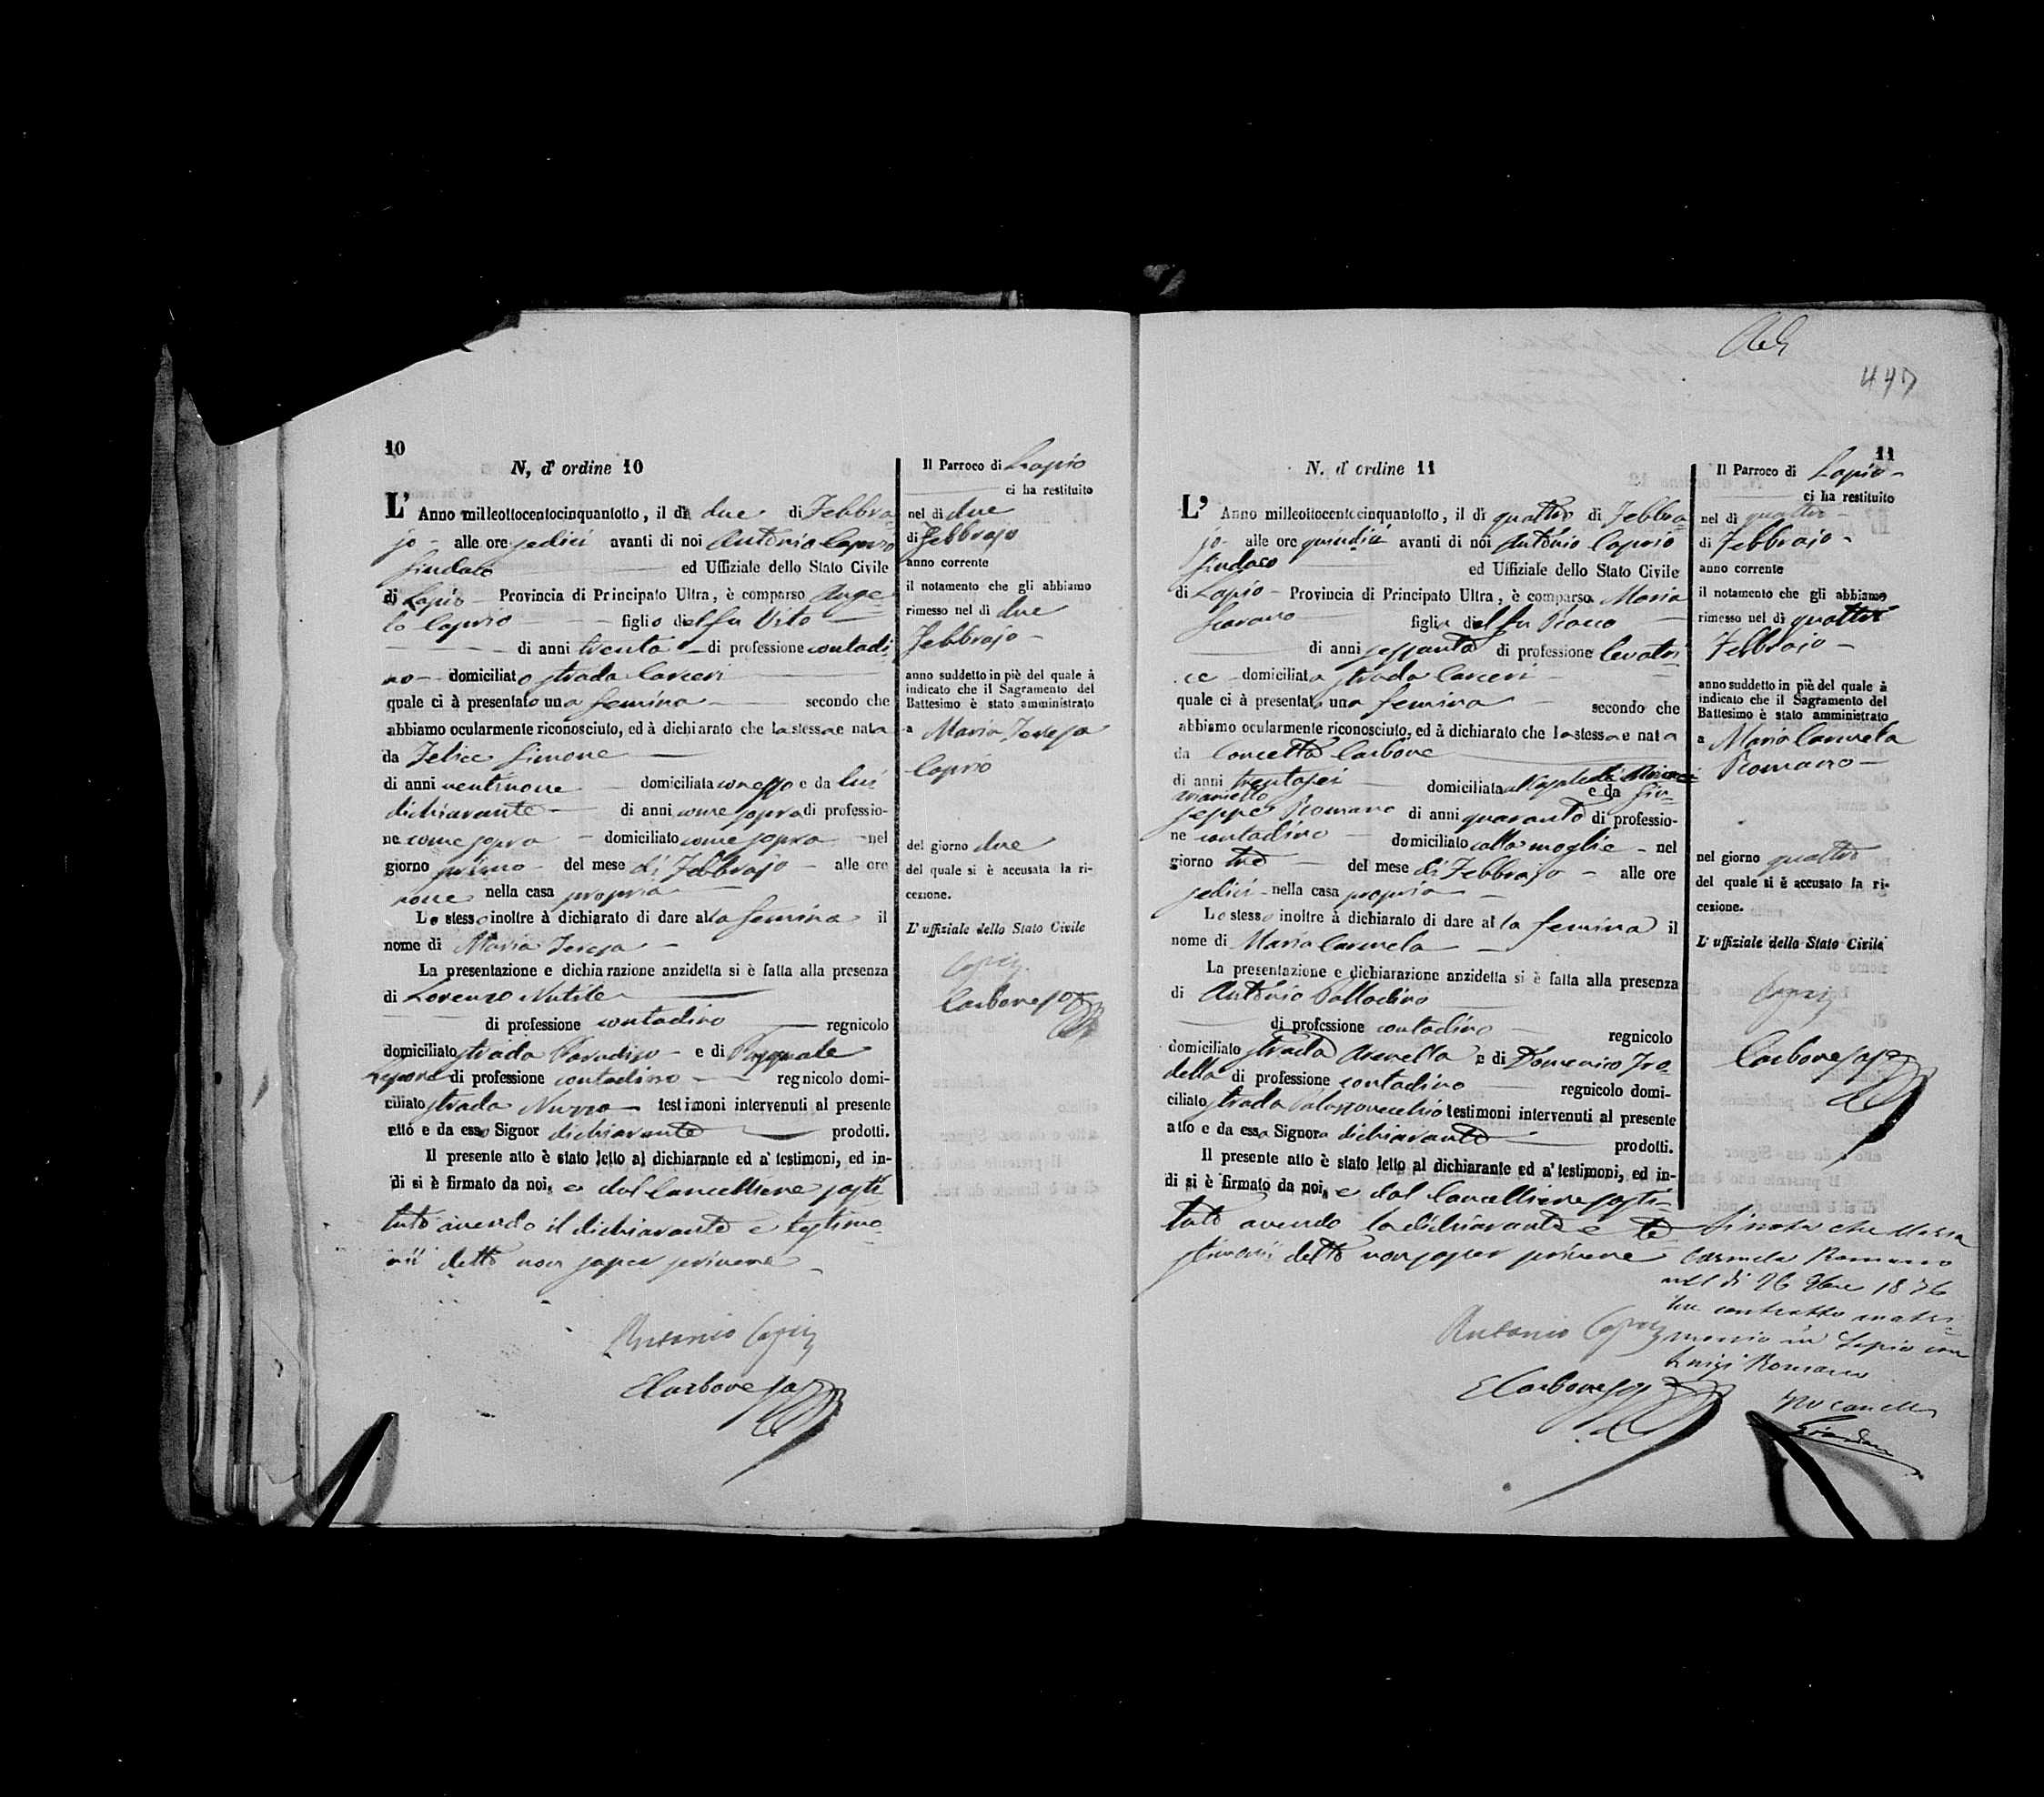 10
N, d' ordine 10
L' Anno milleottocentocinquantotto, il dì due di Febbra
jo - alle ore sedici avanti di noi Antonio Caprio
Sindaco ed Uffiziale dello Stato Civile
di Lapio - Provincia di Principato Ultra, è comparso Ange
lo Caprio figlio del fu Vito
di anni trenta di professione contadi-
no domiciliato strada Carceri
quale ci à presentato una femina secondo che
abbiamo ocularmente riconosciuto, ed à dichiarato che la stessa e nata
da Felice Simone
di anni ventinove domiciliata con esso e da lui
dichiarante di anni come sopra di professio-
ne come sopra domiciliato come sopra nel
giorno primo del mese di Febbrajo alle ore
nove nella casa propria
Lo stesso inoltre à dichiarato di dare alla femina il
nome di Maria Teresa
La presentazione e dichiarazione anzidetta si è fatta alla presenza
di Lorenzo Nutile
di professione contadino regnicolo
domiciliato strada Paradiso e di Pasquale
Lepore di professione contadino regnicolo domi-
ciliato strada Nuzzo testimoni intervenuti al presente
atto e da esso Signor dichiarante prodotti.
Il presente atto è stato letto al dichiarante ed a' testimoni, ed in-
di si è firmato da noi, e dal Cancelliere sosti
tuto avendo il dichiarante e testimo-
nii detto non saper scrivere
Antonio Caprio
E Carbone
Il Parroco di Lapio
ci ha restituito
nel di due
di Febbrajo
anno corrente
il notamento che gli abbiamo
rimesso nel di due
Febbrajo -
anno suddetto in piè del quale à
indicato che il Sagramento del
Battesimo è stato amministrato
a Maria Teresa
Caprio
del giorno due
del quale si è accusata la ri-
cezione.
L' uffiziale dello Stato Civile
Caprio
Carbone
447
11
N. d' ordine 11
L' Anno milleottocentocinquantotto, il dì quattro di Febbra
jo- alle ore quindici avanti di noi Antonio Caprio
Sindaco ed Uffiziale dello Stato Civile
di Lapio - Provincia di Principato Ultra, è comparsa Maria
Scarano figlia del fu Rocco
di anni sessanta di professione levatri-
ce domiciliata strada Carceri
quale ci à presentato una femina secondo che
abbiamo ocularmente riconosciuto, ed à dichiarato che la stessa e nata
da Concetta Carbone
di anni trentasei domiciliata e da Giu-
seppe Romano di anni quaranta di professio-
ne contadino domiciliato colla moglie - nel
giorno tre del mese di Febbrajo - alle ore
sedici nella casa propria
Lo stesso inoltre à dichiarato di dare alla femina il
nome di Maria Carmela
La presentazione e dichiarazione anzidetta si è fatta alla presenza
di Antonio Palladino
di professione contadino regnicolo
domiciliato strada e di Domenico Iro-
della di professione contadino regnicolo domi-
ciliato strada Palazzovecchio testimoni intervenuti al presente
atto e da essa Signora dichiarante prodotti.
Il presente atto è stato letto al dichiarante ed a' testimoni, ed in-
di si è firmato da noi, e dal Cancelliere sosti-
tuto avendo la dichiarante e te
stimonii detto non saper scrivere
Antonio Caprio
E Carbone
Il Parroco di Lapio -
ci ha restituito
nel di quattro
di Febbrajo -
anno corrente
il notamento che gli abbiamo
rimesso nel di quattro
Febbrajo -
anno suddetto in piè del quale à
indicato che il Sagramento del
Battesimo è stato amministrato
a Maria Carmela
Romano
nel giorno quattro
del quale si è accusato la ri-
cezione.
L' uffiziale dello Stato Civile
Caprio
Carbone
Si nota che Maria
Carmela Romano
nel di 26 1876
ha contratto matri-
monio in Lapio con
Luigi Romano